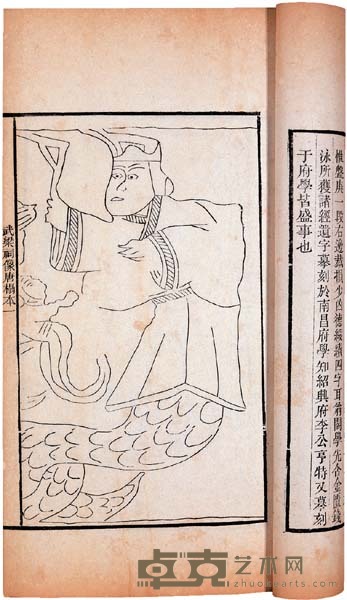 椎盤庚一段右邊裁損少凶德綏績四字耳翁閣學先合金匱錢
泳所獲諸經遺字摹刻於南昌府學知紹興府李公亨特又摹刻
于府學皆盛事也
武梁祠像唐搨本
卓克艺术网
zhuokearts.com